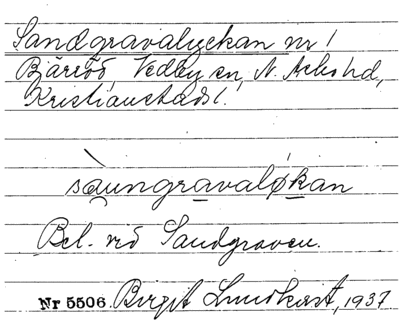 Sandgravalyckan nr 1
Bjärröd, Vedby sn, N. Åsbo hd,
Kristianstads l.
sàungravaløkan
Bel. vid Sandgraven.
Nr 5506. Birgit Lundkvist, 1937